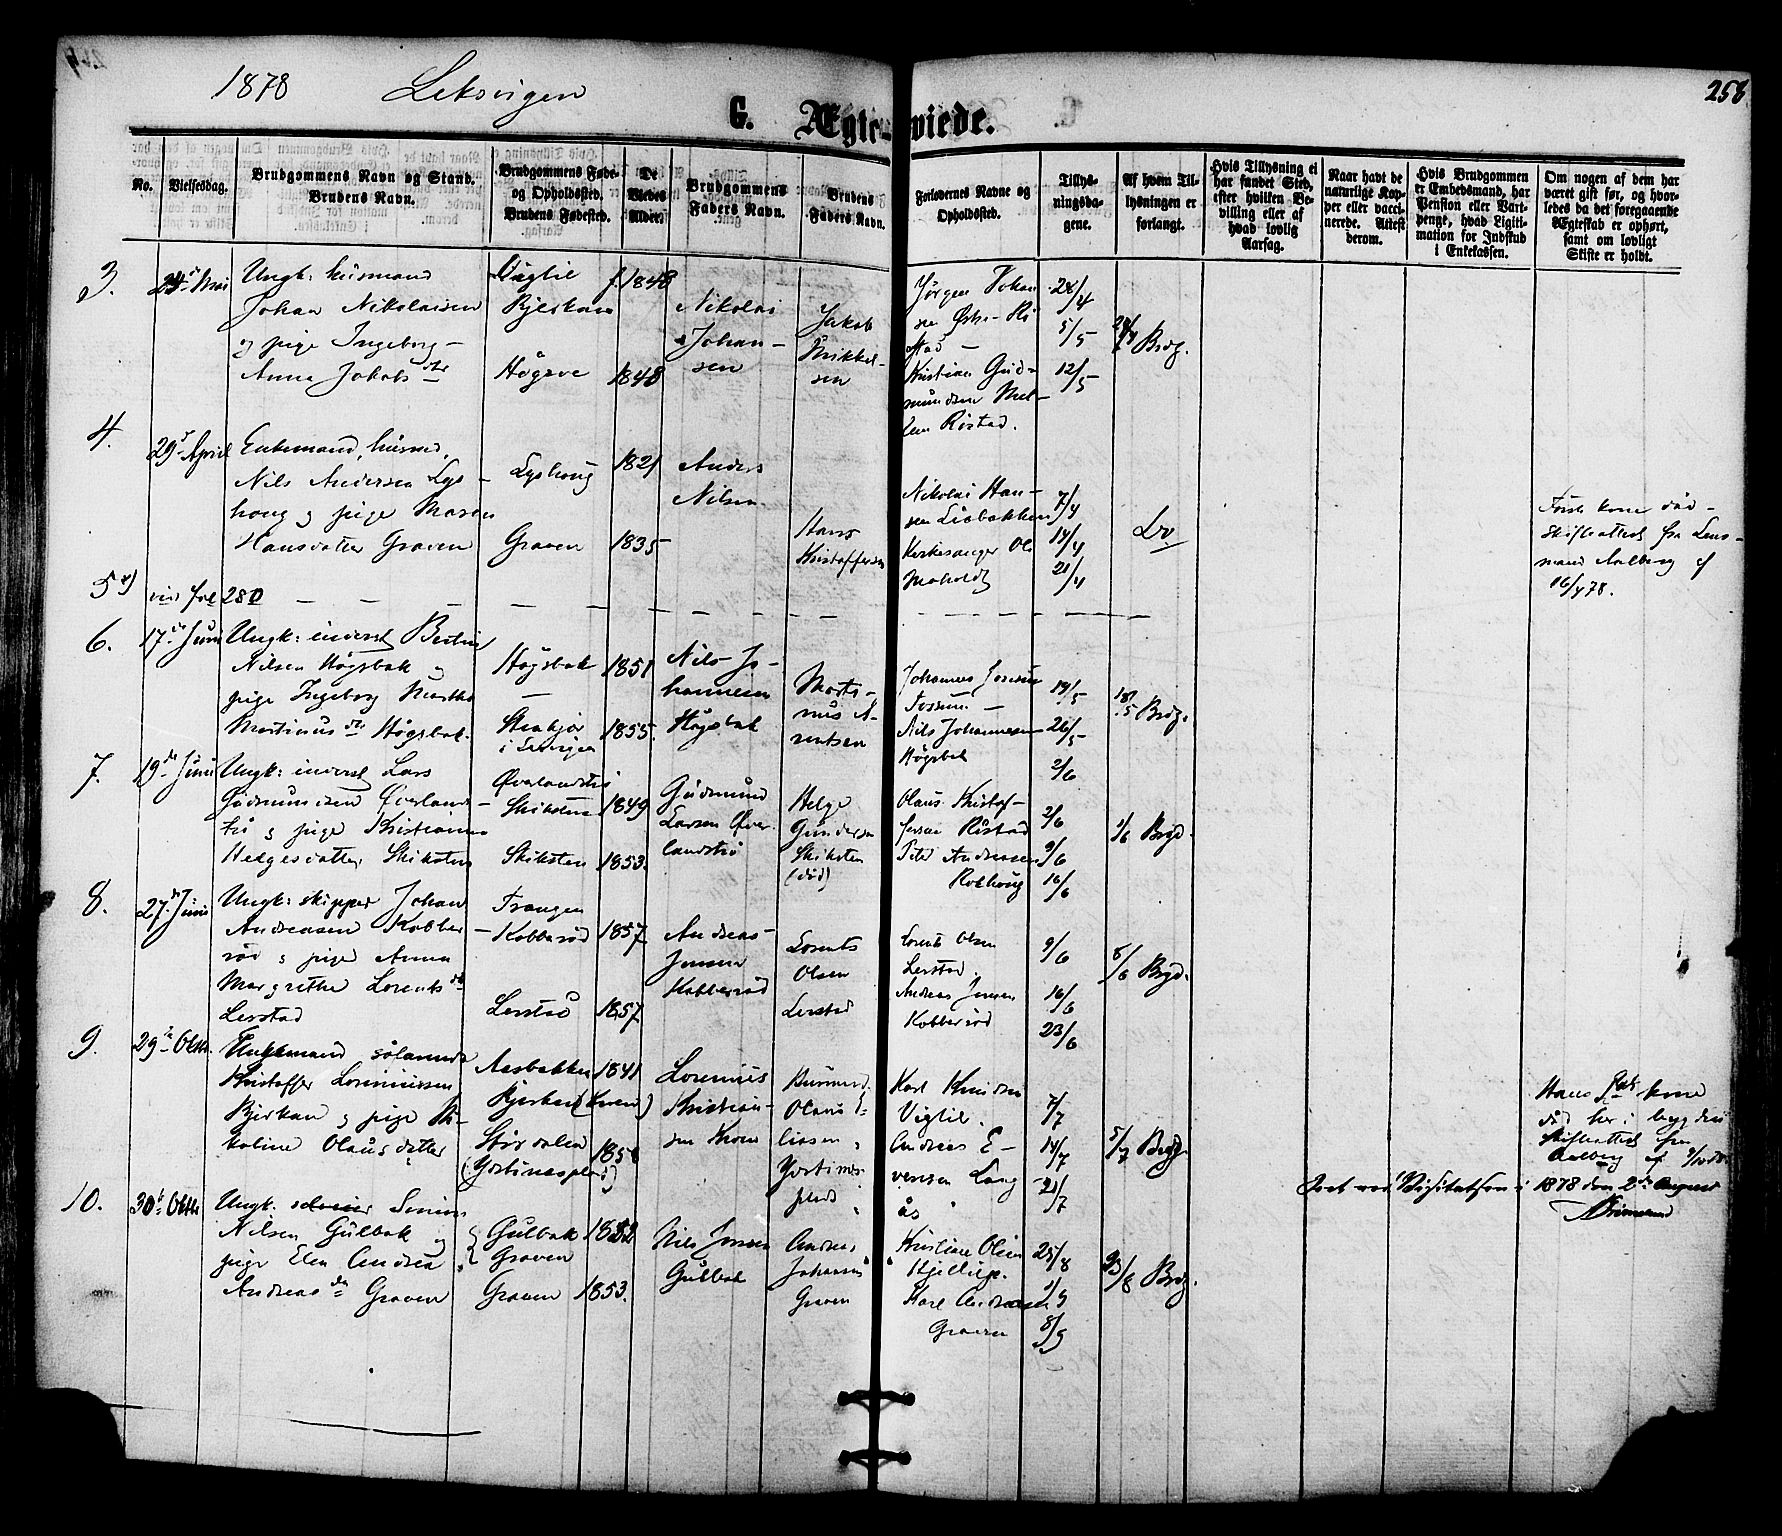 1878 Leksvigen
258
G. Ægte-viede.
No.
Vielsesdag.
Brudgommens Navn og Stand.
Brudens Navn.
Brudgommens Føde-
og Opholdssted.
Brudens Fødested.
De
Viedes
Alder.
Brudgommens
Faders Navn.
Brudens
Faders Navn.
Forlovernes Navne og
Opholdssted.
Tillys-
ningsda-
gene.
Af hvem Til-
lysningen er
forlangt.
Hvis Tillysning ei
har fundet Sted,
efter hvilken Be-
villing eller af
hvad lovlig
Aarsag.
Naar havt de
naturlige Kop-
per eller vacci-
nerede. Attest
derom.
Hvis Brudgommen
er Embedsmand, har
Pension eller Vart-
penge, hvad Ligiti-
mation for Indskud
i Enkekassen.
Om nogen af dem har
været gift før, og hvor-
ledes da det foregaaende
Ægteskab er ophørt,
samt om lovligt
Skifte er holdt.
3.
Mai
Ungk: husmand
Johan Nikolaisen
og pige Ingeborg-
Anna Jakobsdtr
Vigtil
Bjerkan
Högsve
f. 1848
1848
Nikolai
Johan-
sen
Jakob
Mikkel-
sen
Jörgen Johan
sen Østre Rö
stad -
Kristian Gud-
mundsen Mel-
lem Röstad.
28/4
5/5
12/5
Brdg.
4.
29 April
Enkemand, husmd,
Nils Andersen Lys-
houg og pige Maren
Hansdatter Graven
Lyshoug
Graven
1821
1835
Anders
Nilsen
Hans
Kristoffersen
Nikolai Han-
sen Liabakken
Kirkesanger Ole
Moholdt
7/4
14/4
21/4
Do
Første kone död-
skifteattest fra Lens-
mand Aalberg af
16/4 78.
5
vid fol 280
6.
17 Juni
Ungk: inderst Bertin
Nilsen Högsbak og
pige Ingeborg Martha
Martinusdtr Högsbak.
Högsbak
Stenkjær
i Leksvigen
1851
1855.
Nils Jo-
hannesen
Högsbak
Marti-
nus A-
rentsen
Johannes Jensen
Fossum -
Nils Johannesen
Högsbak
19/5
26/5
2/6
18/5 Brdg.
7.
19 Juni
Ungk: inderst Lars
Gudmundsen Øverlands-
trö og pige Kristianna
Helgesdatter Skiksten
Øverlandströ
Skiksten
Skiksten
1849
1853.
Gudmund
Larsen Øver-
landströ
Helge
Gundersen
Skiksten
(död)
Olaus Kristof-
fersen Röstad
Peter Andreasen
Rokhoug
2/6
9/6
16/6
1/6 Brgd.
8.
27 Juni
Ungk: skipper Johan
Andreasen Kobber-
röd og pige Anna
Margrethe Lorentsdtr
Lerstad
Trangen
Kobberröd
Lerstad
1857
1857
Andreas
Jensen
Kobberröd
Lorents
Olsen
Lerstad
Lorents Olsen
Lerstad.
Andreas Jensen
Kobberröd
9/6
16/6
23/6
8/6 Brgd.
9.
29 Oktbr.
Enkemand
Kristoffer Lorentsen
Bjerkan og pige Ni-
koline Olausdatter
Aasbakken
Bjerkan
Størdalen
1841
1858
Lorenius
Kristian-
sen
Olaus E-
liasen
plads
Karl Knudsen
Vigtil.
Andreas E-
vensen Lang
ås
7/7
14/7
21/7
5/7 Brdg.
Hans kone
död her i bygden
skifteattest fra
Aalberg af
10.
30 Oktbr
Ungk. Simon
Nilsen Gulbak og
pige Elen Andrea
Andreasdtr Graven
Gulbak
Graven
Graven
1852
1853.
Nils Jensen
Gulbak
Andreas
Johansen
Graven
Kristian Olsen
Hjellup.
Karl Andreasen
Graven
25/8
1/9
8/9
23/8 Brdg.
Seet ved Visitatsen i 1878 den 2de August